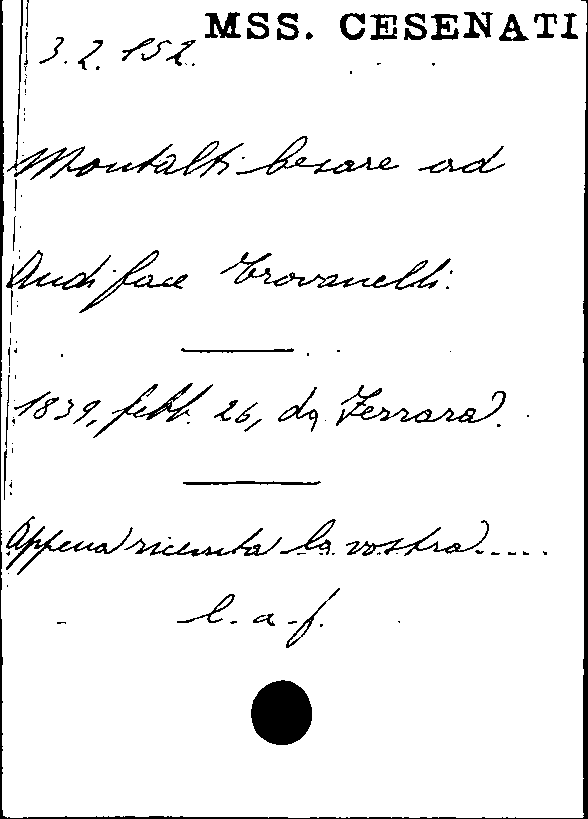 MSS. CESENATI
3.2.152.
Montalti Cesare ad
Audiface Trovanelli.
1839, febb. 26, da Ferrara.
Appena ricevuta la vostra.....
l. a. f.